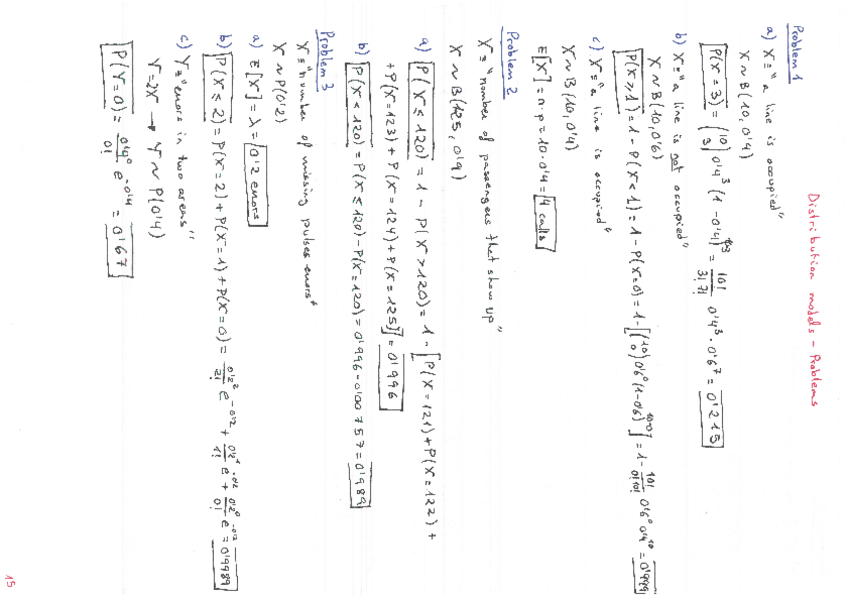 Distribution models - Problems
Problem 1
a) X ≡ "a line is occupied"
X ~ B(10, 0'4)
P(X = 3) = (10 3) 0'4³ (1 - 0'4)¹⁰⁻³ = 10! / 3! 7! 0'4³ · 0'6⁷ = 0'215
b) X ≡ "a line is not occupied"
X ~ B(10, 0'6)
P(X ≥ 1) = 1 - P(X < 1) = 1 - P(X = 0) = 1 - [(10 0) 0'6⁰ (1 - 0'6)¹⁰⁻⁰] = 1 - 10! / 0! 10! 0'6⁰ 0'4¹⁰ = 0'999
c) X ≡ "a line is occupied"
X ~ B(10, 0'4)
E[X] = n · p = 10 · 0'4 = 4 calls
Problem 2
X ≡ "number of passengers that show up"
X ~ B(125, 0'9)
a) P(X ≤ 120) = 1 - P(X > 120) = 1 - [P(X = 121) + P(X = 122) +
+ P(X = 123) + P(X = 124) + P(X = 125)] = 0'996
b) P(X < 120) = P(X ≤ 120) - P(X = 120) = 0'996 - 0'00757 = 0'989
Problem 3
X ≡ "number of missing pulses errors"
X ~ P(0'2)
a) E[X] = λ = 0'2 errors
b) P(X ≤ 2) = P(X = 2) + P(X = 1) + P(X = 0) = 0'2² / 2! e⁻⁰'² + 0'2¹ / 1! e⁻⁰'² + 0'2⁰ / 0! e⁻⁰'² = 0'9989
c) Y ≡ "errors in two areas"
Y = 2X → Y ~ P(0'4)
P(Y = 0) = 0'4⁰ / 0! e⁻⁰'⁴ = 0'67
15